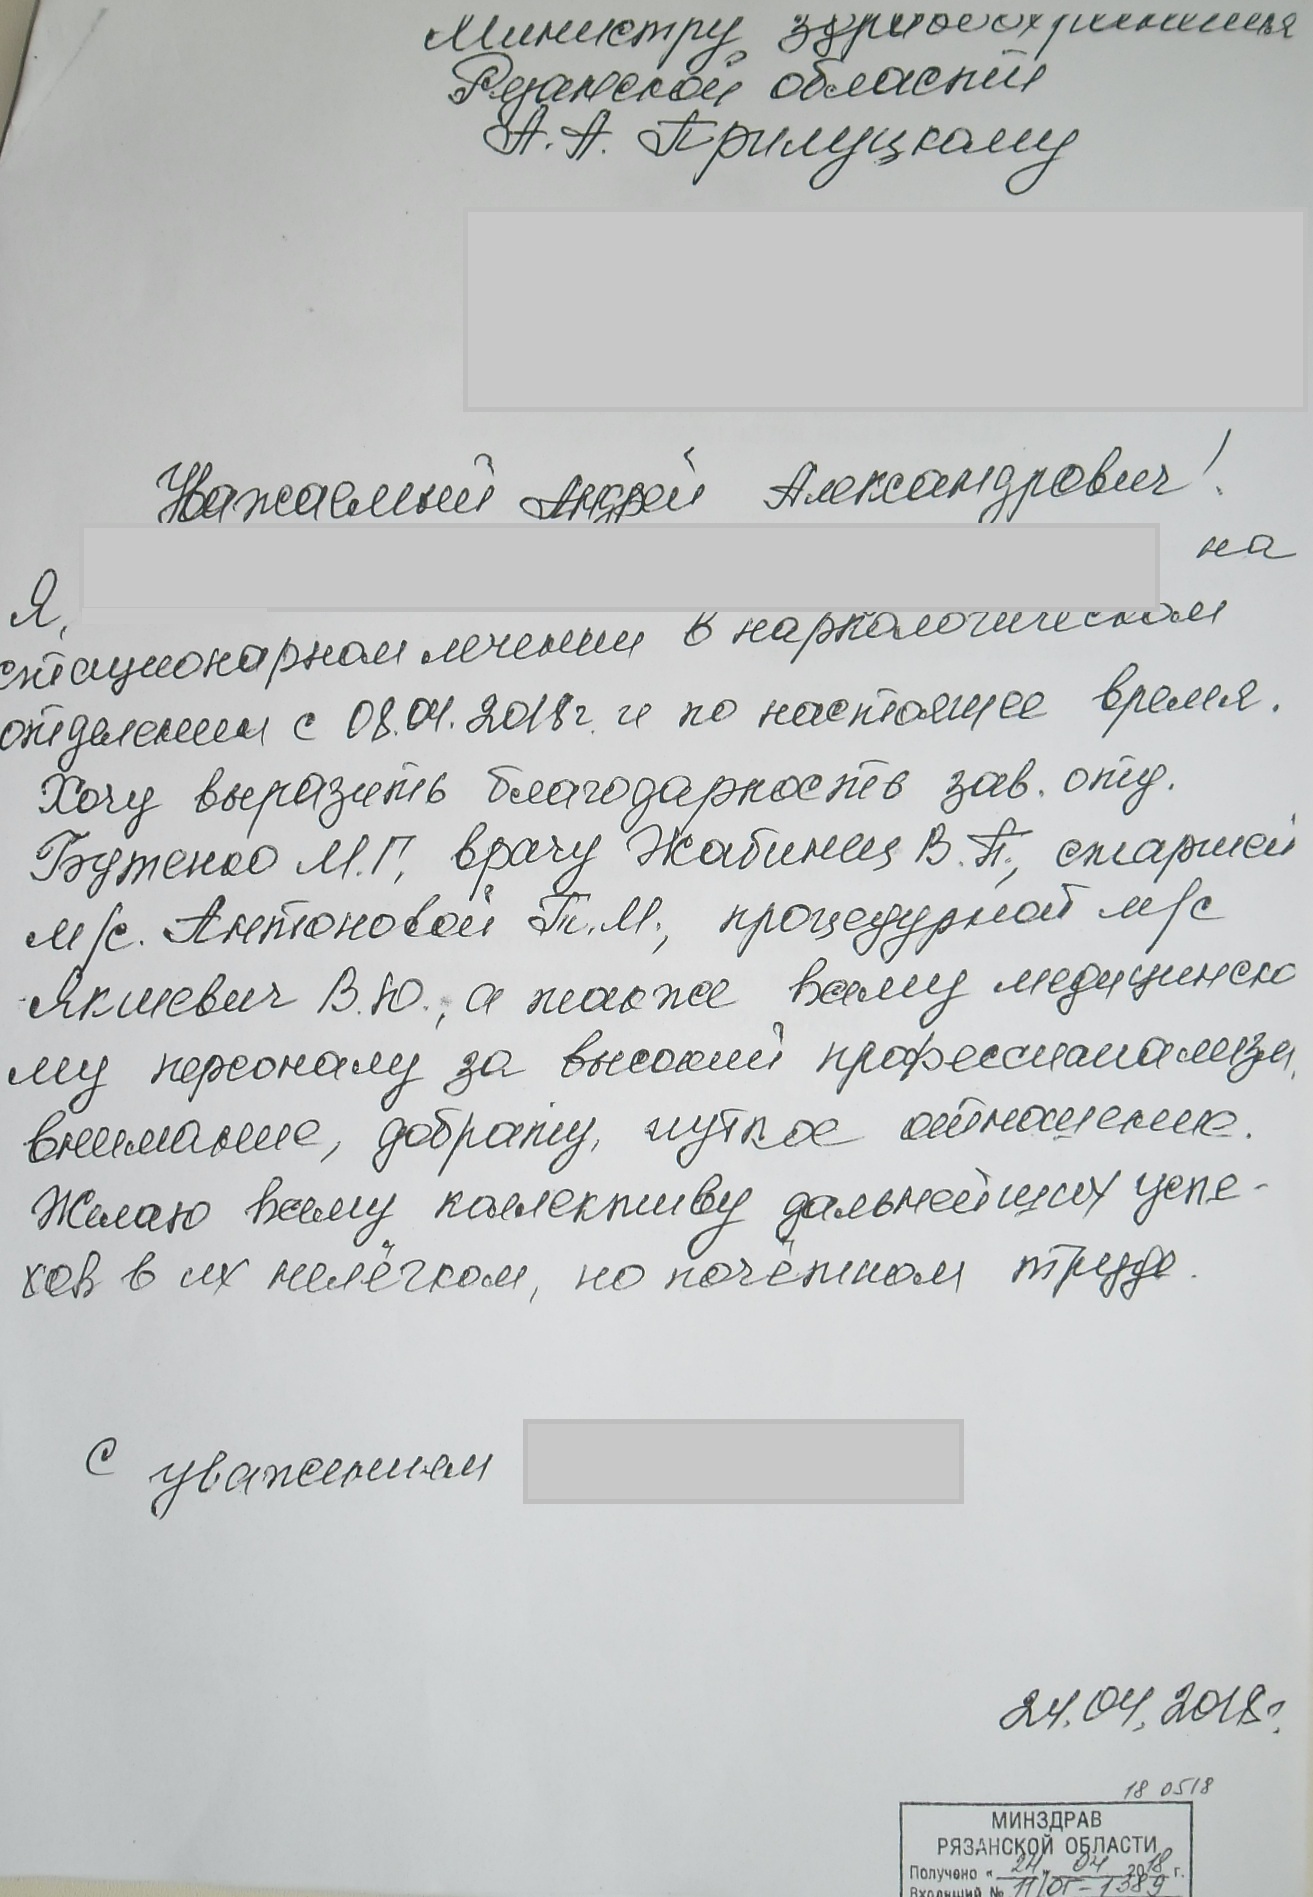 Министру здравоохранения
Рязанской области
А. А. Прилуцкому
Уважаемый Андрей Александрович!
Я, на
стационарном лечении в наркологическом
отделении с 08.04.2018г. и по настоящее время.
Хочу выразить благодарность зав. отд.
Бутенко М.Г., врачу Жабинец В.П., старшей
м/с. Антоновой Т.М., процедурной м/с
Якшевич В.Ю., а также всему медицинско
му персоналу за высокий профессионализм,
внимание, доброту, чуткое отношение.
Желаю всему коллективу дальнейших успе-
хов в их нелёгком, но почётном труде.
С уважением
24.04.2018г.
18 0518
МИНЗДРАВ
РЯЗАНСКОЙ ОБЛАСТИ
Получено « 24 » 04 2018 г.
Входящий № 11/ОГ-1389